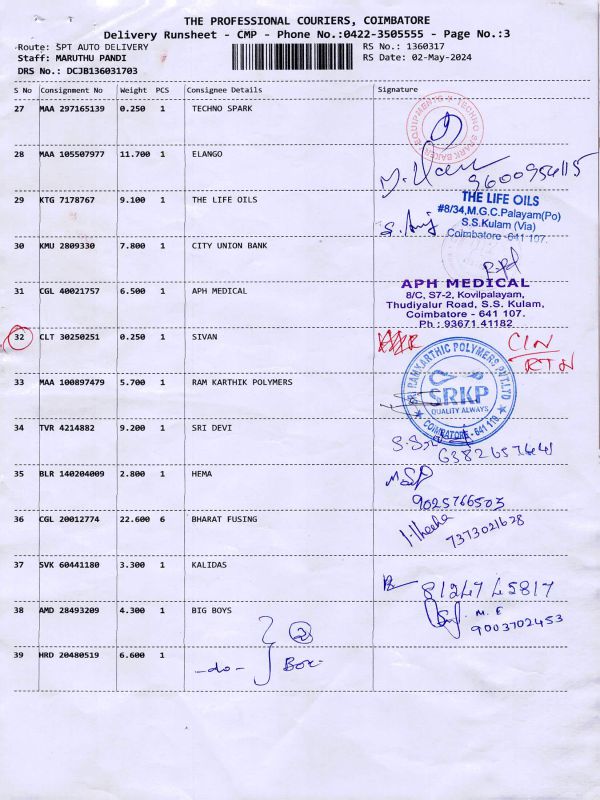 THE PROFESSIONAL COURIERS, COIMBATORE
Delivery Runsheet - CMP - Phone No.:0422-3505555 - Page No.:3
Route: SPT AUTO DELIVERY
RS No.: 1360317
Staff: MARUTHU PANDI
RS Date: 02-May-2024
DRS No.: DCJB136031703
S No Consignment No Weight PCS Consignee Details Signature
27 MAA 297165139 0.250 1 TECHNO SPARK
28 MAA 105507977 11.700 1 ELANGO
9600956115
29 KTG 7178767 9.100 1 THE LIFE OILS
THE LIFE OILS
#8/34,M.G.C.Palayam(Po)
S.S.Kulam (Via)
Coimbatore -641 107.
30 KMU 2809330 7.800 1 CITY UNION BANK
31 CGL 40021757 6.500 1 APH MEDICAL
APH MEDICAL
8/C, S7-2, Kovilpalayam,
Thudiyalur Road, S.S. Kulam,
Coimbatore - 641 107.
Ph : 93671 41182
32 CLT 30250251 0.250 1 SIVAN
CIN
RTN
33 MAA 100897479 5.700 1 RAM KARTHIK POLYMERS
RAMKARTHIC POLYMERS PVT.LTD
SRKP
QUALITY ALWAYS
COIMBATORE - 641 110
34 TVR 4214882 9.200 1 SRI DEVI
6382657641
35 BLR 140204009 2.800 1 HEMA
9025766503
36 CGL 20012774 22.600 6 BHARAT FUSING
7373021628
37 SVK 60441180 3.300 1 KALIDAS
81247 45817
38 AMD 28493209 4.300 1 BIG BOYS
M. E
9003702453
39 HRD 20480519 6.600 1
-do-
2
Box-